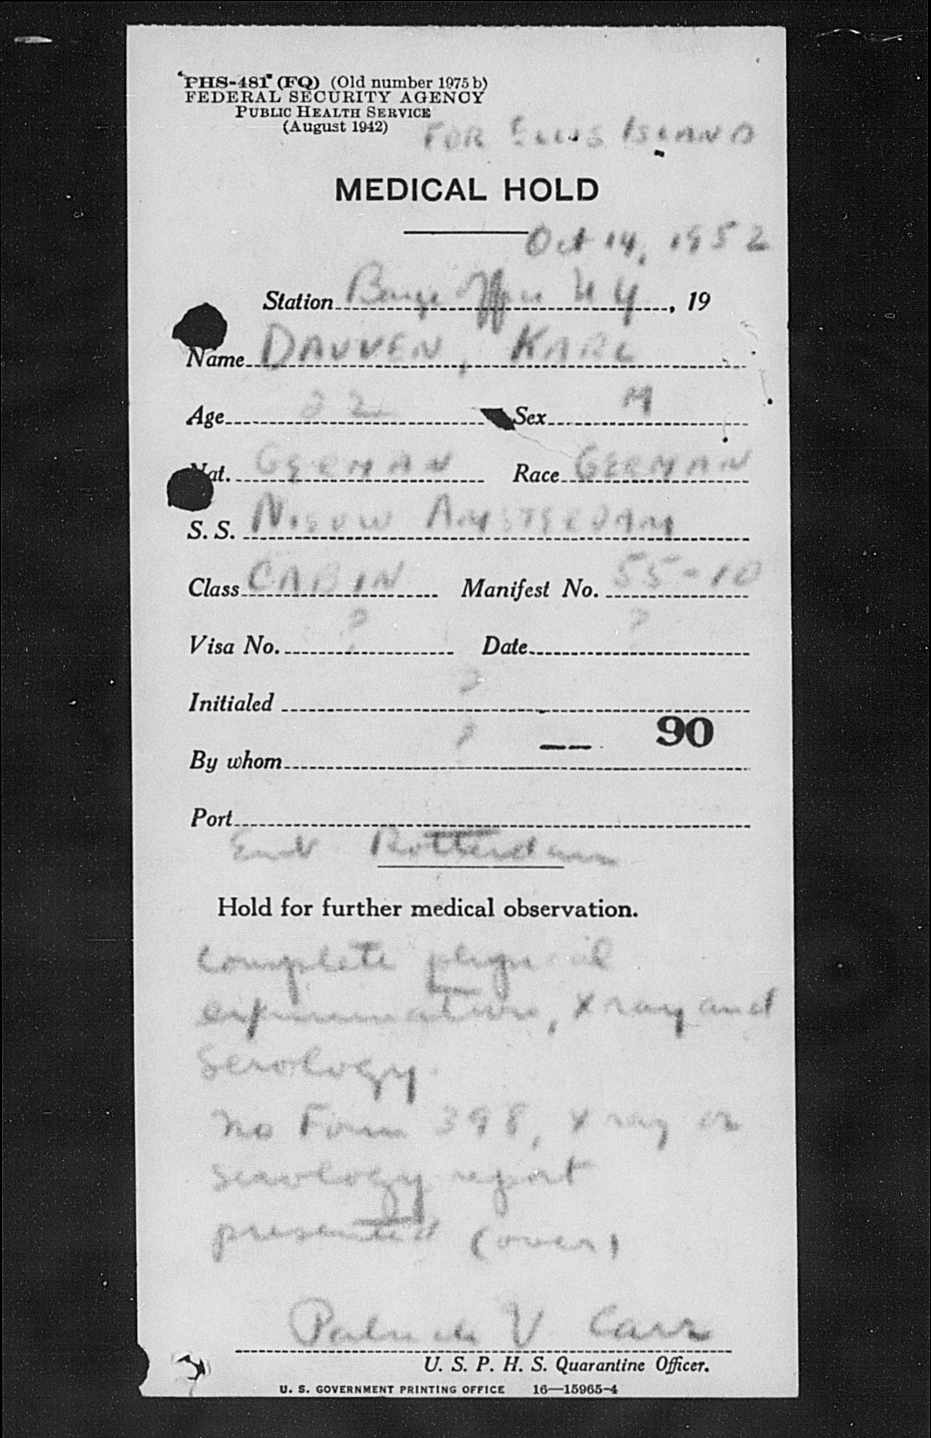 "PHS-481" (FQ) (Old number 1975 b)
FEDERAL SECURITY AGENCY
PUBLIC HEALTH SERVICE
(August 1942)
FOR ELLIS ISLAND
MEDICAL HOLD
Oct 14, 1952
Station Barge Office N Y, 19
Name DAUVEN, KARL
Age 22 Sex M
Nat. GERMAN Race GERMAN
S. S. NIEUW AMSTERDAM
Class CABIN Manifest No. 55-10
Visa No. ? Date ?
Initialed ?
By whom ? 90
Port
Emb Rotterdam
Hold for further medical observation.
Complete physical
examination, X ray and
Serology.
No Form 398, X ray or
serology report
presented (over)
Patrick V Carr
U. S. P. H. S. Quarantine Officer.
U. S. GOVERNMENT PRINTING OFFICE 16—15965-4